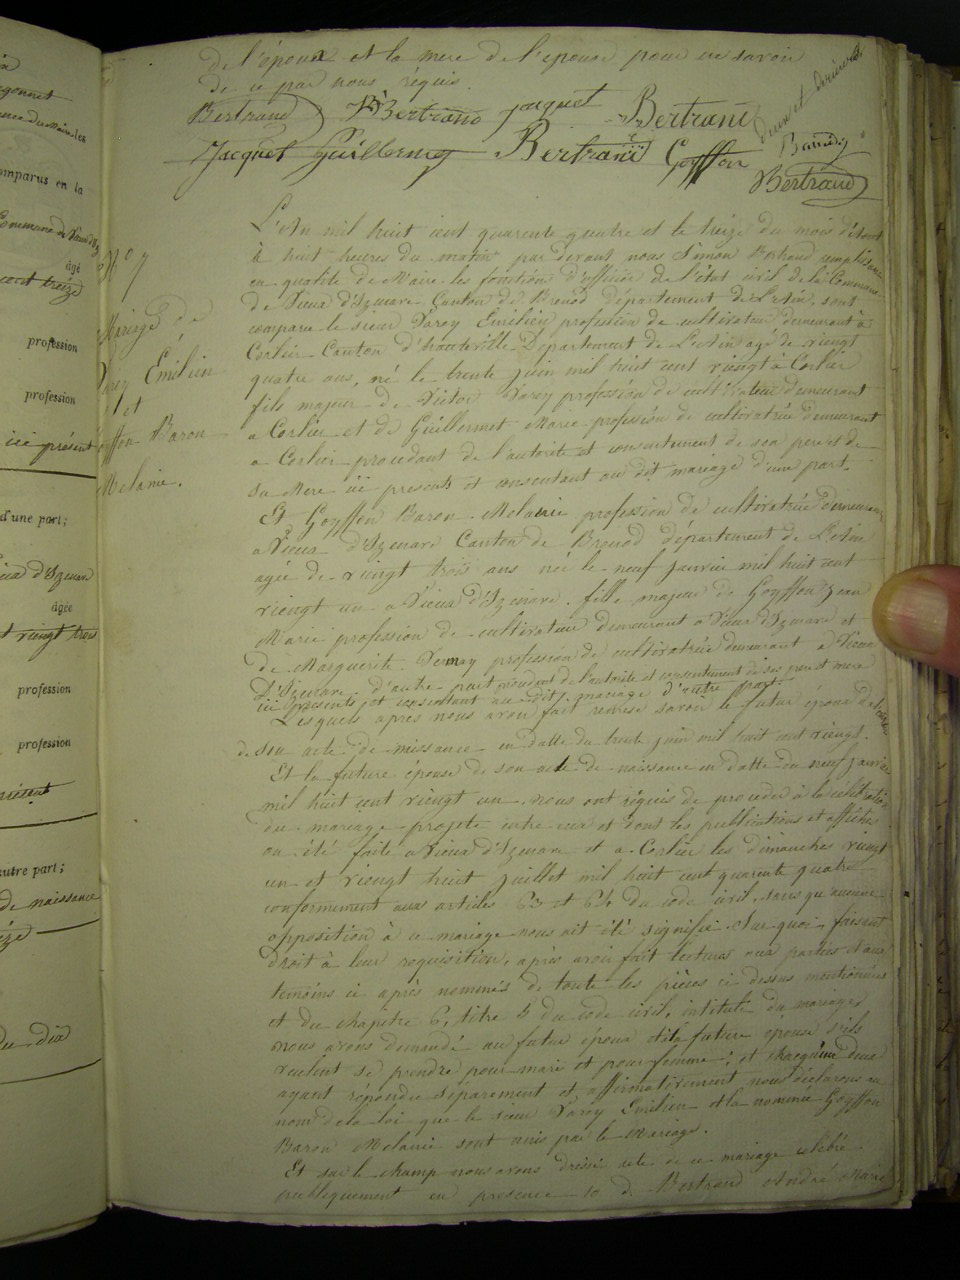 de l'époux et la mere de l'epouse pour ne savoir
de ce par nous réquis.
Bertrand Bertrand jacquet Bertrand
Jacquet Guillermet Bertrand Goyffon
Bertrand
N° 7
Mariage de
Darey Émilien
et
Goyffon Baron
Melanie.
L'An mil huit cent quarente quatre et le treize du mois d'Aout
à huit heures du matin par devant nous Simon Bertrand remplissant
en qualite de Maire les fonctions d'officier de l'état civil de la Commune
de Vieux d'Izenave, Canton de Brenod département de L'Ain, sont
comparu le sieur Darey Emilien profession de cultivateur demeurant à
Corlier Canton d'hauteville Departement de L'Ain agé de viengt
quatre ans, né le trente juin mil huit cent viengt à Corlier
fils majeur de Victor Darey profession de cultivateur demeurant
a Corlier et de Guillermet Marie profession de cultivatrice demeurant
a Corlier procedant de l'autorité et consentement de son pere et de
sa Mere ici presents et consentant au dit mariage d'une part.
Et Goyffon Baron Melanie profession de cultivatrice demeurant
a Vieux d'Izenave Canton de Brenod département de L'Ain
agée de viengt trois ans née le neuf janvier mil huit cent
viengt un a Vieux d'Izenave. fille majeur de Goyffon Jean
Marie profession de cultivateur demeurant a Vieux d'Izenave et
de Marguerite profession de cultivatrice demeurant a Vieux
D'Izenave, d'autre part procedant de l'autorité et consentement de ses pere et mere
ici presents et consentant au dit mariage d'autre part.
Lesquels après nous avoir fait remise savoir le futur époux
de son acte de naissance en datte du trente juin mil huit cent viengt.
Et la future épouse de son acte de naissance en datte du neuf janvier
mil huit cent viengt un. nous ont réquis de proceder à la célébration
du mariage projeté entre eux et dont les publications et affiches
on été faite a Vieux d'Izenave et a Corlier les dimanches viengt
un et viengt huit juillet mil huit cent quarente quatre
conformement aux articles 63 et 64 du code civil, sans qu'aucune
opposition à ce mariage nous ait été signifie. Sur quoi, faisant
droit à leur requisition, après avoir fait lectures aux parties et aux
temoins ci après nommés de toute les pièces ci dessus mentionnées
et du chapitre 6, titre 5 du code civil, intitulé du mariage,
nous avons demandé au futur époux et à la future épouse s'ils
veulent se prendre pour mari et pour femme; et chacqu'un deux
ayant répondu séparement et affirmativement nous déclarons au
nom de la loi que le sieur Darey Emilien et la nommée Goyffon
Baron Melanie sont unis par le Mariage.
Et sur le champ nous avons dressé acte de ce mariage celebré
publiquement en presence 1o d. Bertrand André Marie
profession
profession
ici présent
d'une part;
agée
viengt trois
profession
profession
présent
autre part;
de naissance
du dix